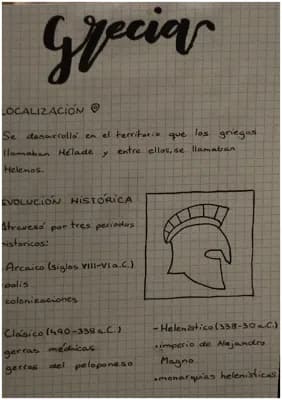 Grecia
LOCALIZACIÓN
Se desarrolló en el territorio que los griegos
llamaban Hélade y entre ellos, se llamaban
Helenos.
EVOLUCIÓN HISTÓRICA
Atravesó por tres periodos
históricos:
- Arcaico (siglos VIII-VI a.C.)
polis
colonizaciones
- Clásico (490-338 a.C.)
gerras médicas
gerras del peloponeso
- Helenístico (338-30 a.C.)
• imperio de Alejandro
Magno
• monarquías helenísticas